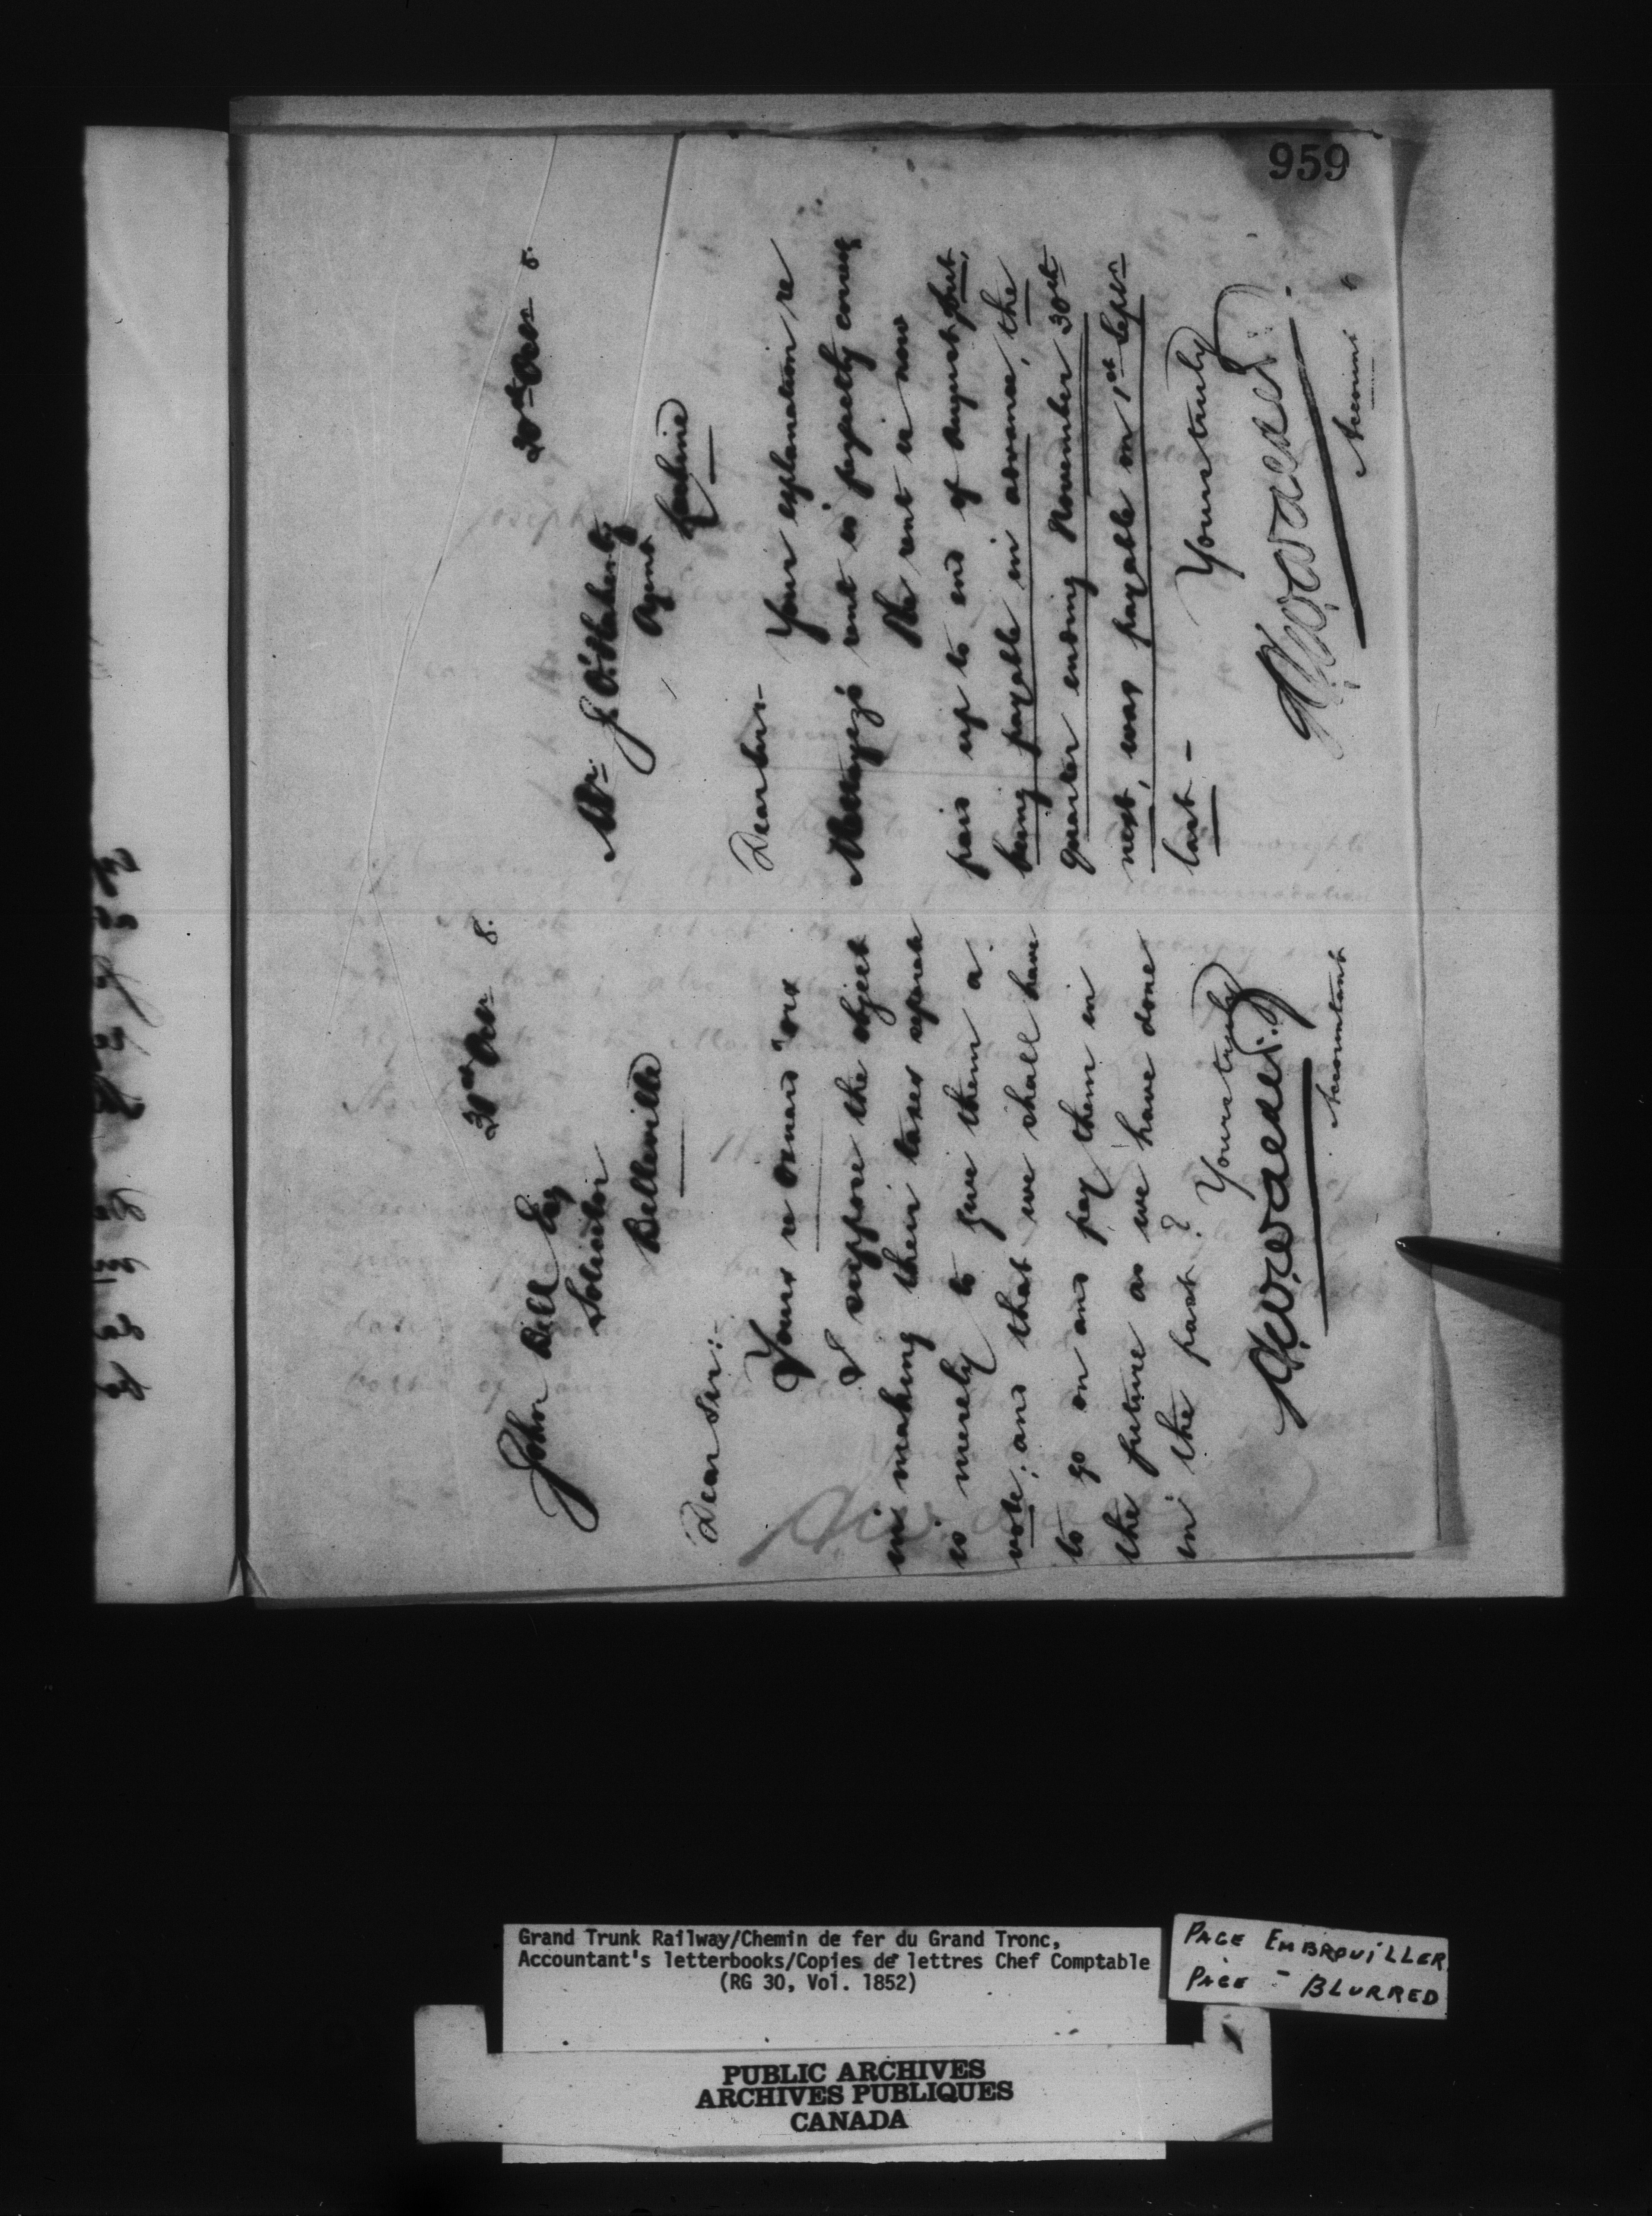 959
20th Octr 8.
John Bell Esq
Solicitor
Belleville
Dear Sir:
Yours re
I suppose the object
in making their taxes separate
is merely to give them a
vote; and that we shall have
to go on and pay them in
the future as we have done
in the past?
Yours truly
Accountant
20th Octr 8.
Mr J. O'Flaherty
Agent
Lachine
Dear Sir-
Your explanation re
rent is perfectly correct
The rent is now
paid up to end of August but,
being payable in advance, the
quarter ending November 30th
next, was payable on 1st Septr
last -
Yours truly
Grand Trunk Railway/Chemin de fer du Grand Tronc,
Accountant's letterbooks/Copies de lettres Chef Comptable
(RG 30, Vol. 1852)
PAGE EMBROUILLER
PAGE - BLURRED
PUBLIC ARCHIVES
ARCHIVES PUBLIQUES
CANADA